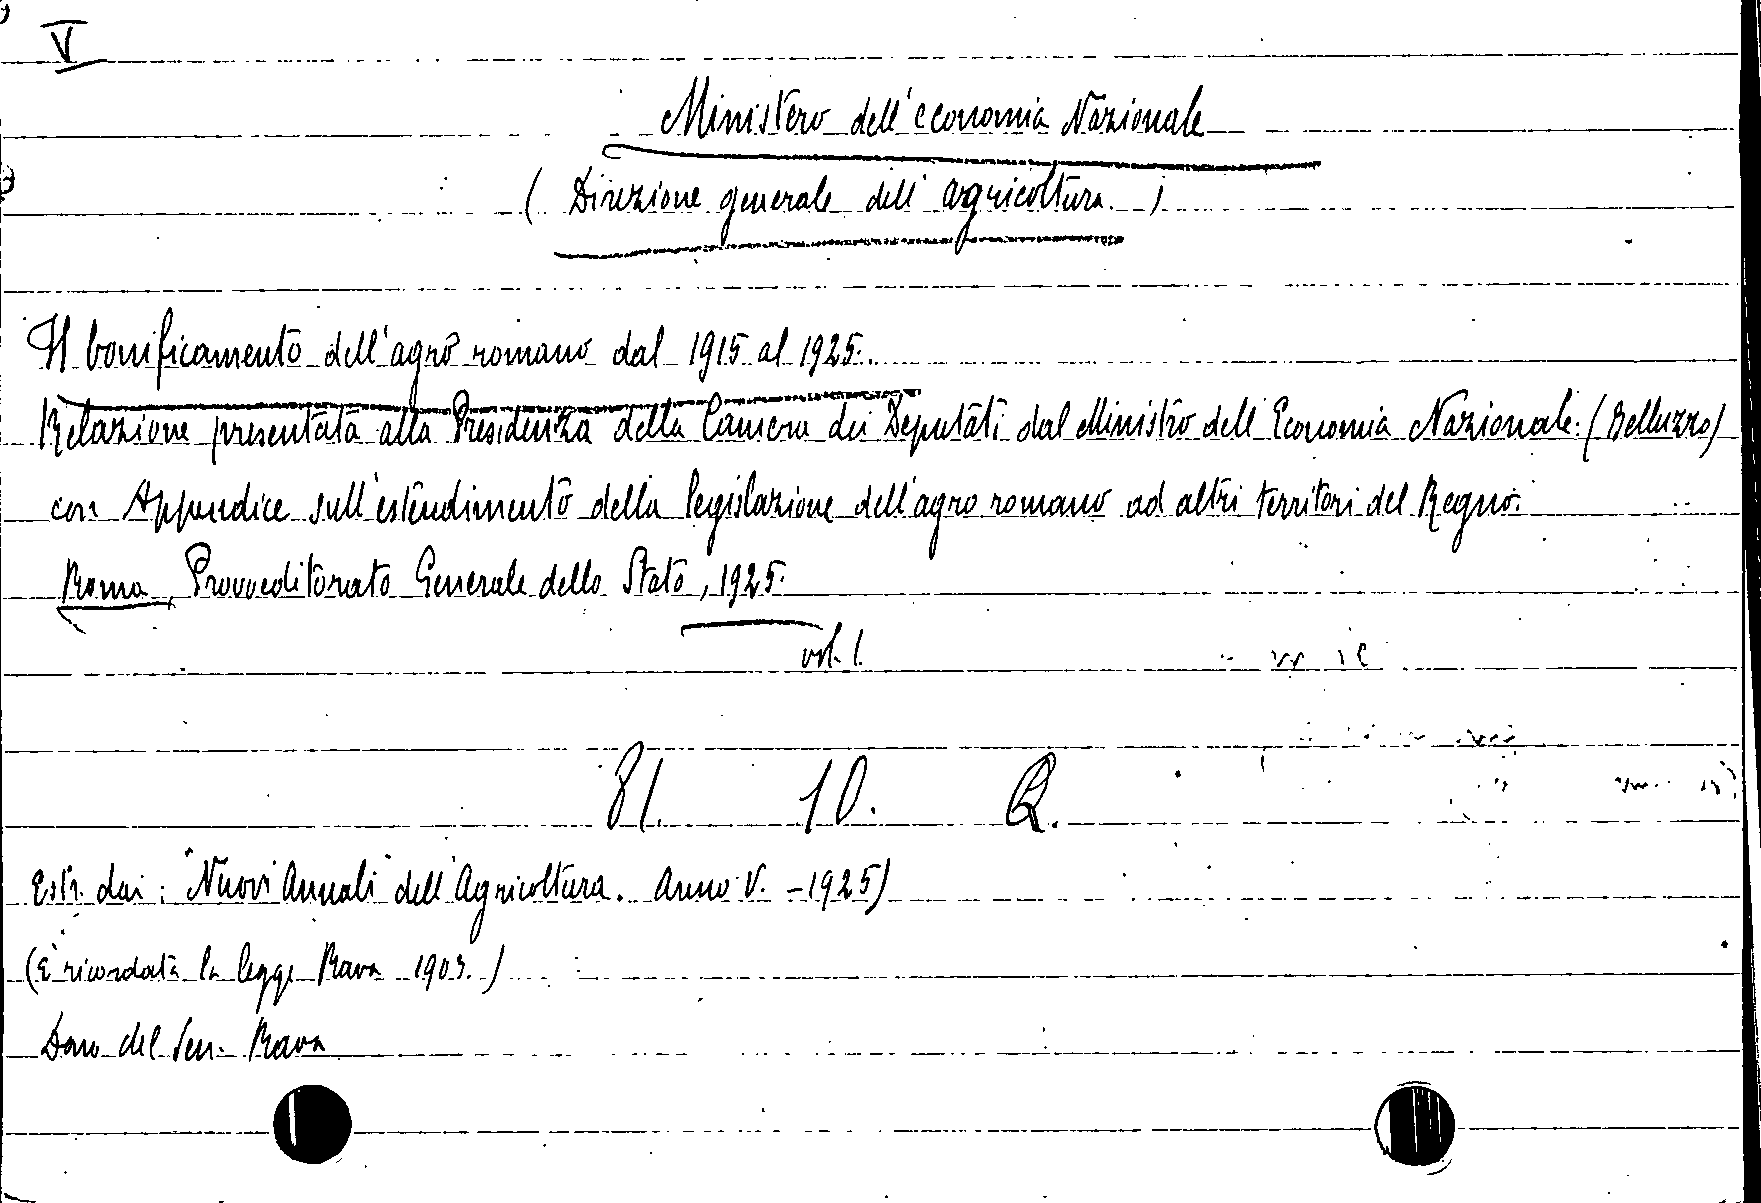 V
Ministero dell'economia Nazionale
(Direzione generale dell'agricoltura.)
Il bonificamento dell'agro romano dal 1915 al 1925.
Relazione presentata alla Presidenza della Camera dei Deputati dal Ministro dell'Economia Nazionale (Belluzzo)
con Appendice sull'estendimento della legislazione dell'agro romano ad altri territori del Regno.
Roma, Provveditorato Generale dello Stato, 1925.
vol. 1.
81. 10. Q.
Estr. dai: "Nuovi Annali dell'Agricoltura. Anno V. - 1925)
(È ricordata la legge Rava 1903.)
Dono del Sen. Rava